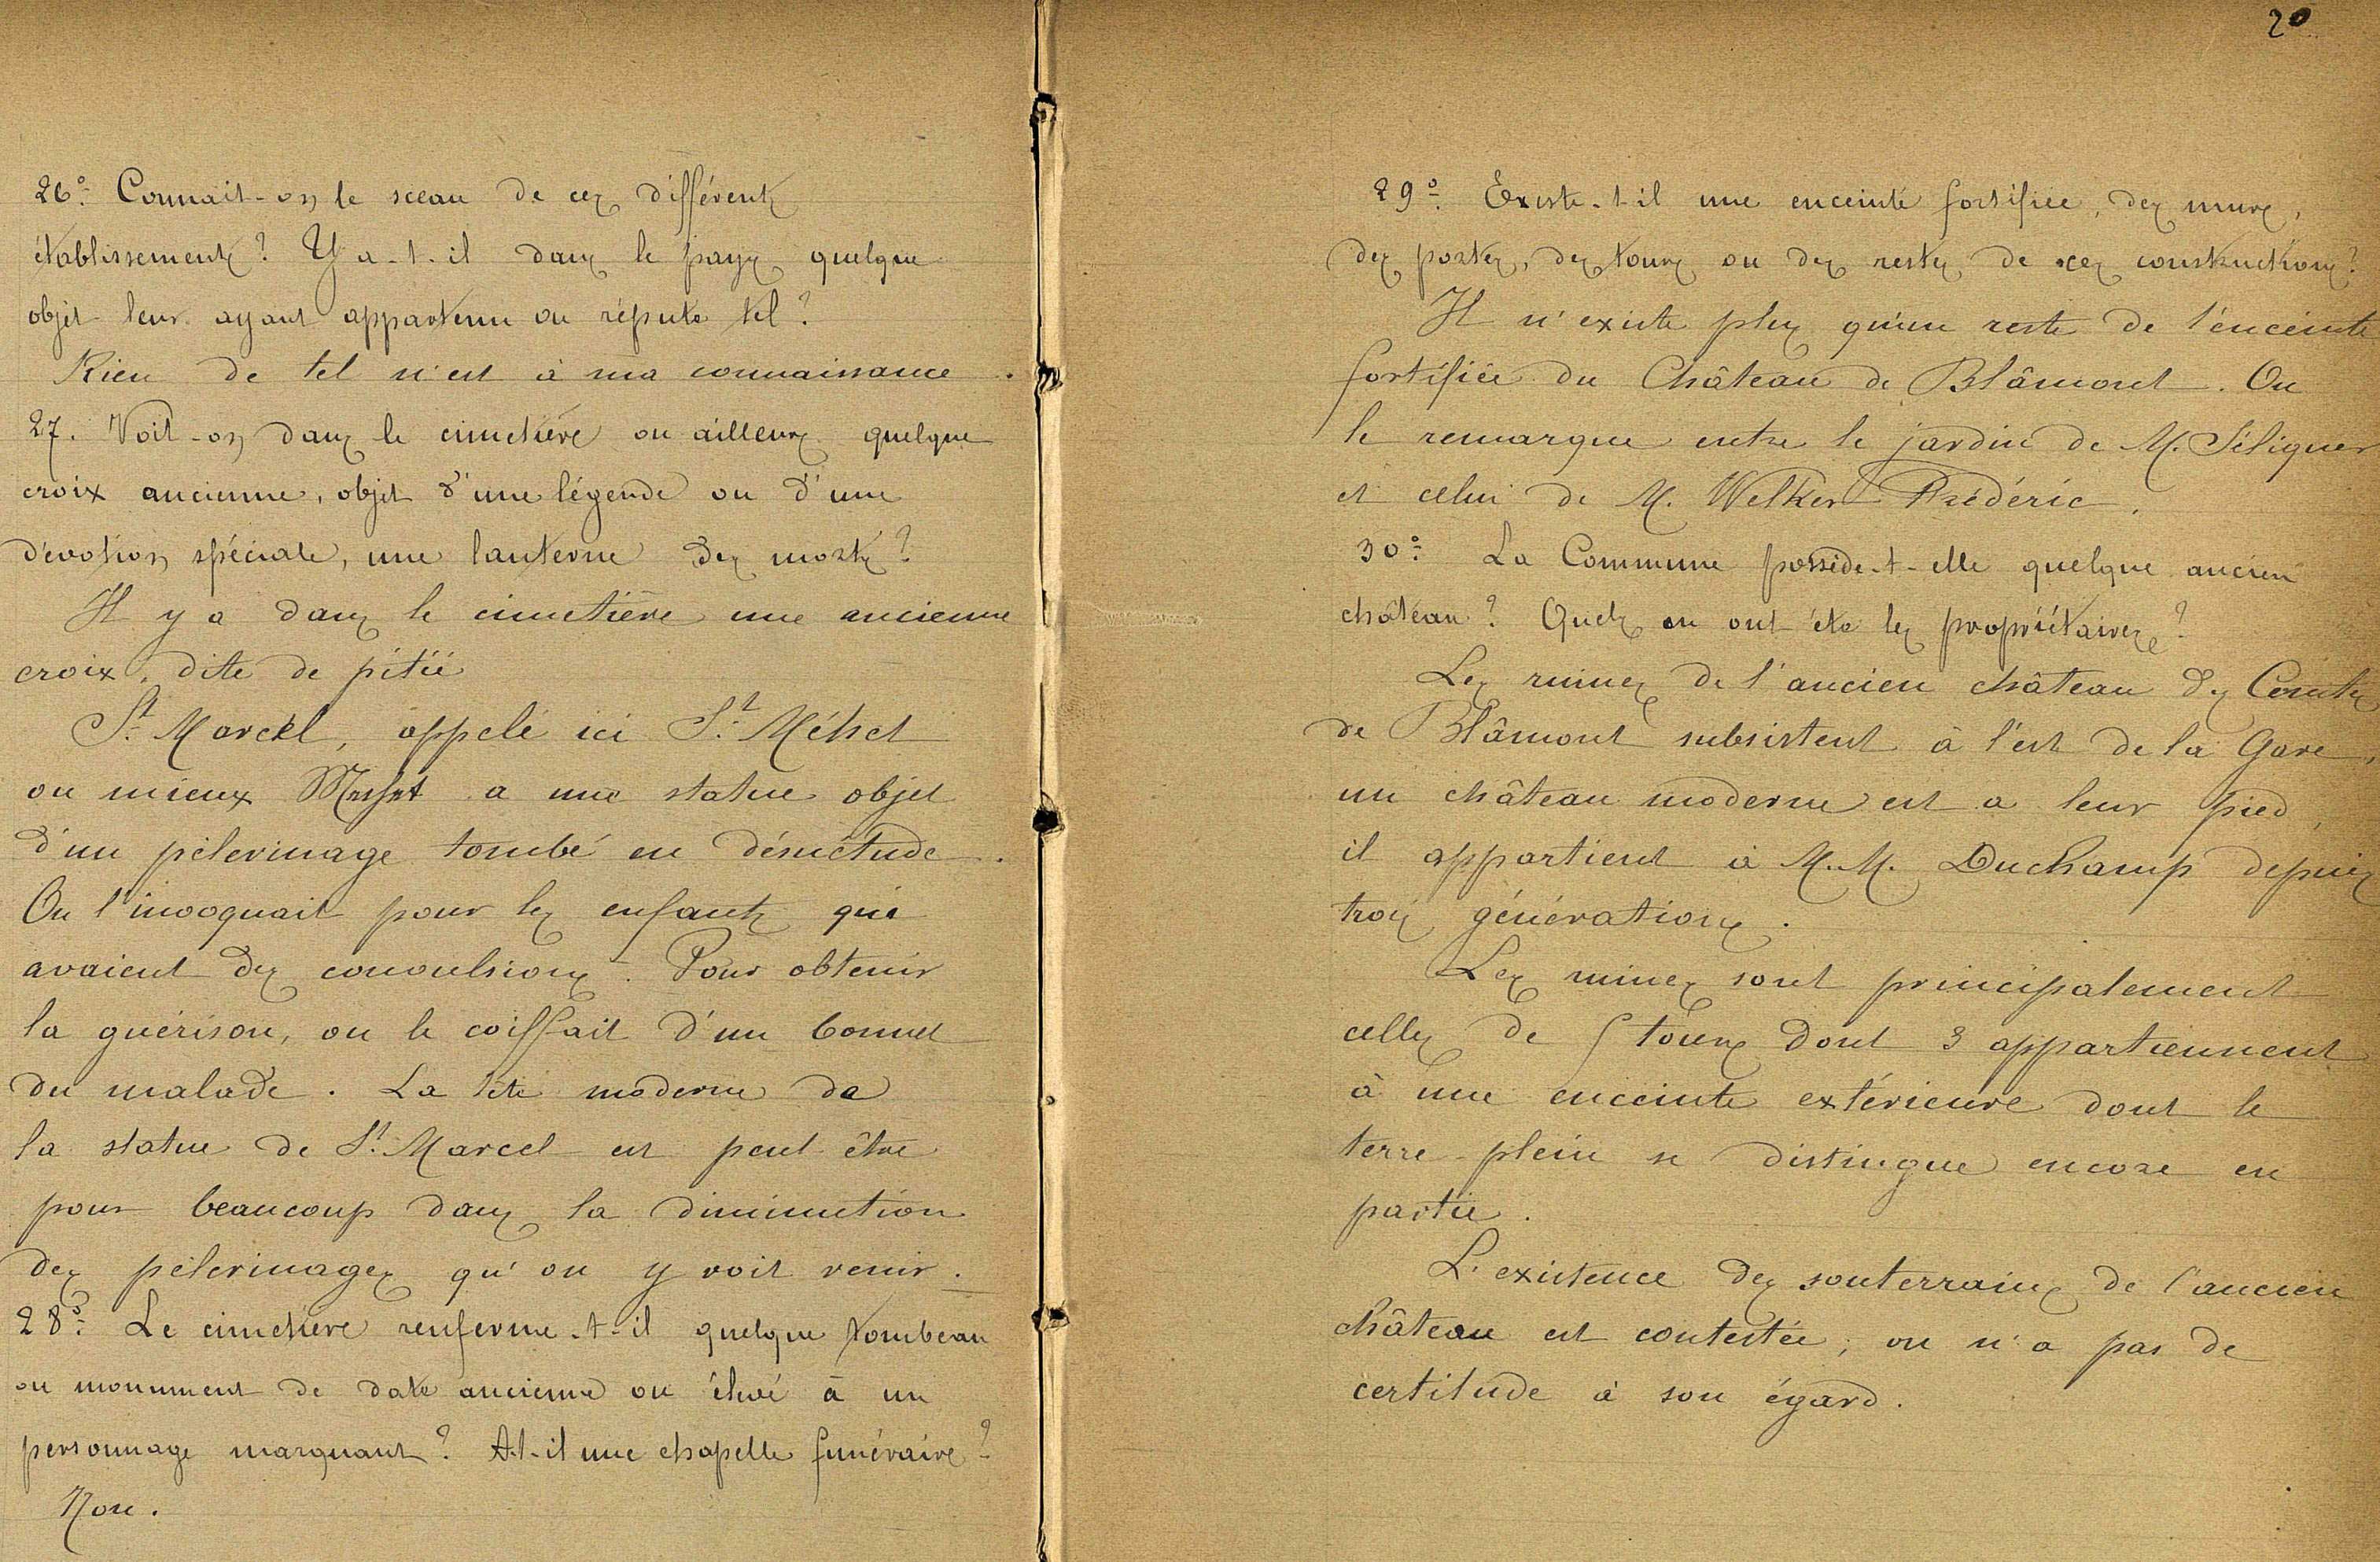 26º Connait-on le sceau de ces différents
établissements? Y a-t-il dans le pays quelque
objet leur ayant appartenu ou réputé tel?
Rien de tel n'est à ma connaissance.
27. Voit-on dans le cimetière ou ailleurs quelque
croix ancienne, objet d'une légende ou d'une
dévotion spéciale, une lanterne des morts?
Il y a dans le cimetière une ancienne
croix, dite de pitié
St Marcel, appelé ici St Méhet
ou mieux a une statue objet
d'un pèlerinage tombé en désuétude.
On l'invoquait pour les enfants qui
avaient des convulsions. Pour obtenir
la guérison, on le coiffait d'un bonnet
du malade. La tête moderne de
la statue de St Marcel est peut être
pour beaucoup dans la diminution
des pèlerinages qu'on y voit venir.
28º Le cimetière renferme-t-il quelque tombeau
ou monument de date ancienne ou élevé à un
personnage marquant? A-t-il une chapelle funéraire?
Non.
20
29º Existe-t-il une enceinte fortifiée, des murs,
des portes, des tours ou des restes de ces constructions?
Il n'existe plus qu'un reste de l'enceinte
fortifiée du Château de Blâmont. On
le remarque entre le jardin de M. Séligner
et celui de M. Welker Frédéric.
30º La Commune possède-t-elle quelque ancien
château? Quels en ont été les propriétaires?
Les ruines de l'ancien château des Comtes
de Blâmont subsistent à l'est de la Gare,
un château moderne est a leur pied,
il appartient à M.M. Duchamp depuis
trois générations.
Les ruines sont principalement
celles de 5 tours dont 3 appartiennent
à une enceinte extérieure dont le
terre-plein se distingue encore en
partie.
L'existence des souterrains de l'ancien
château est contestée; on n'a pas de
certitude à son égard.